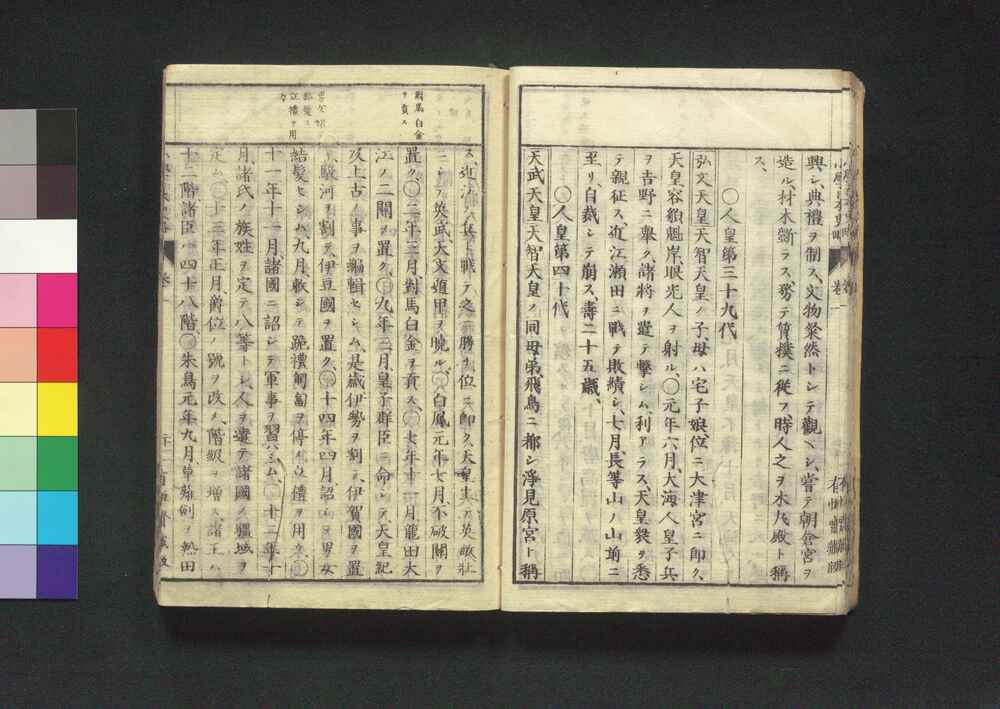 興シ、典禮ヲ制ス、文物粲然トシテ觀ベシ、嘗テ朝倉宮ヲ
造ル、材木斷ラス、務テ質撲ニ從フ、時人之ヲ木丸殿ト稱
ス、
○人皇第三十九代
弘文天皇天智天皇ノ子、母ハ宅子娘、位ニ大津宮ニ卽ク、
天皇容貌魁岸、眼光人ヲ射ル、○元年六月、大海人皇子兵
ヲ吉野ニ擧ク、諸將ヲ遣テ擊シム、利アラス、天皇衆ヲ悉
テ親征ス、近江瀬田ニ戰テ敗績シ、七月、長等山ノ山前ニ
至リ、自裁シテ崩ス、壽二十五歲、
○人皇第四十代
天武天皇天智天皇ノ同母弟、飛鳥ニ都シ淨見原宮ト稱
ス、近江ノ兵ト戰テ之ニ勝チ、位ニ卽ク、天皇
英武
○白鳳元年七月、不破關ヲ
置ク、○二年三月、對馬白金ヲ貢ス、○七年十一月龍田大
江ノ二關ヲ置ク、○九年三月、皇子群臣ニ命シテ、天皇紀
及上古ノ事ヲ編輯セシム、是歲伊勢ヲ割テ伊賀國ヲ置
駿河ヲ割テ伊豆國ヲ置ク、○十四年四月、詔シテ男女
結髮セシム、九月、敕シテ跪禮匍匐ヲ停メ立禮ヲ用
十一年十一月、諸國ニ詔シテ軍事ヲ習シム、○十三年十
月、諸氏ノ族姓ヲ定テ八等トシ、人ヲ遣テ諸國ノ疆域ヲ
定ム、○十三年正月爵位ノ號ヲ改メ、階級ヲ增ス、諸王ハ
十二階諸臣ハ四十八階、○朱鳥元年九月、草薙劍ヲ熱田
對馬白金
ヲ貢ス
立禮ヲ用